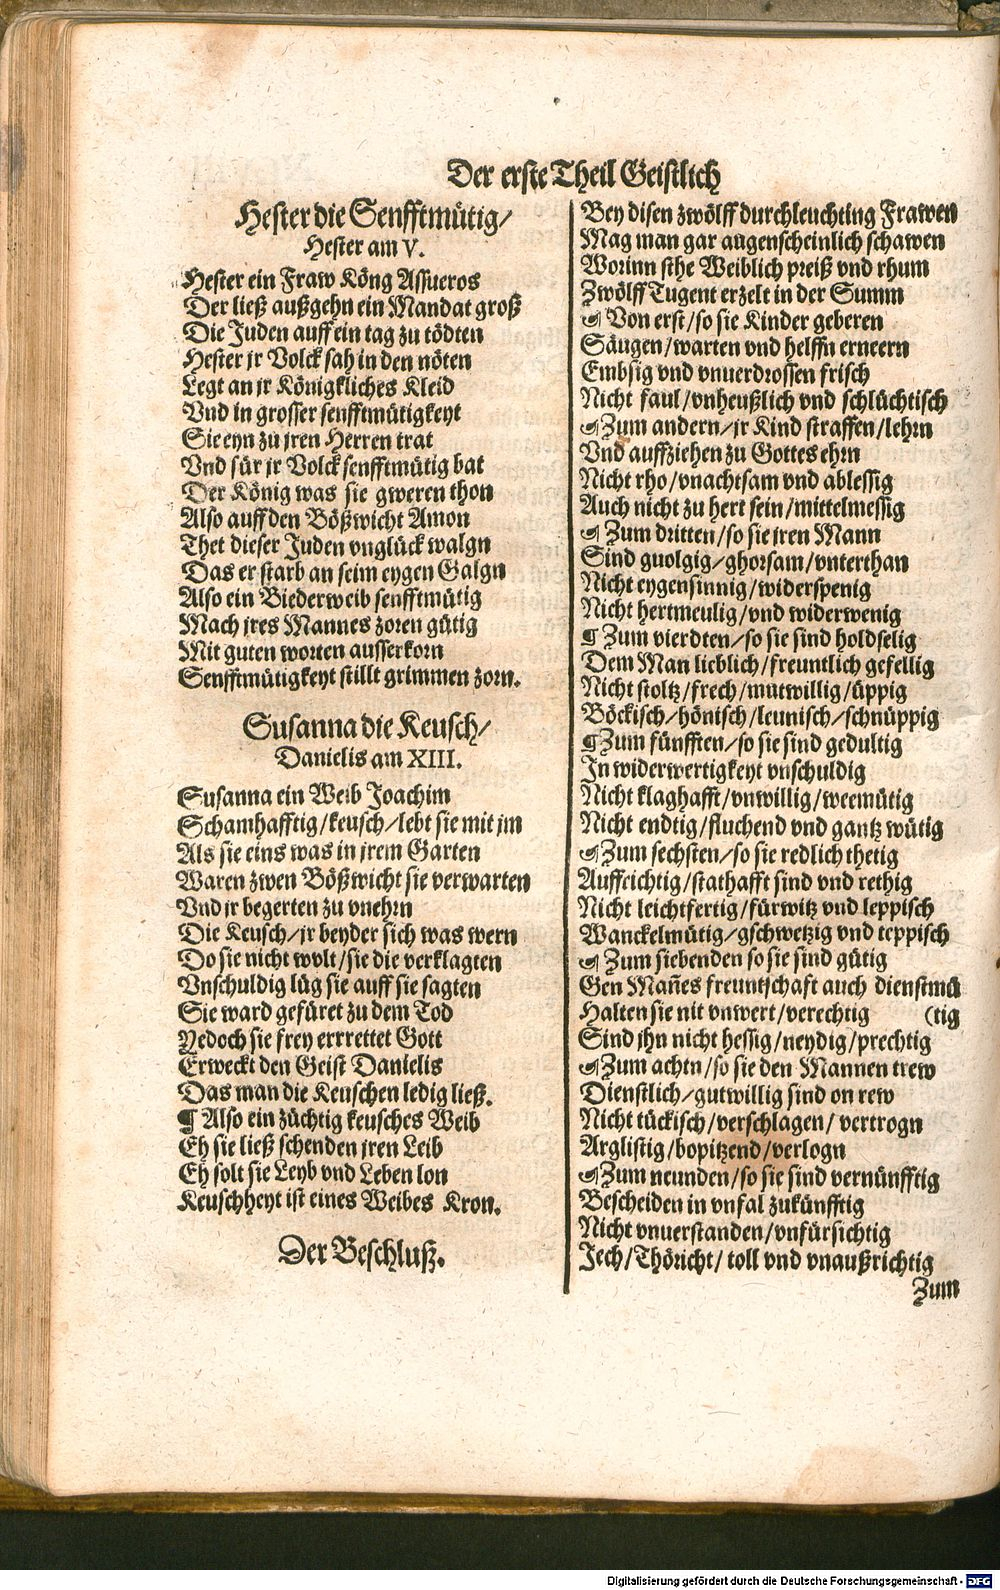 Der erste Theil Geistlich
Hester die Senfftmütig/
Hester am V.
Hester ein Fraw Köng Assueros
Der ließ außgehn ein Mandat groß
Die Juden auff ein tag zu tödten
Hester jr Volck sah in den nöten
Legt an jr Königkliches Kleid
Vnd in grosser senfftmütigkeyt
Sie eyn zu jren Herren trat
Vnd für jr Volck senfftmütig bat
Der König was sie gweren thon
Also auff den Bößwicht Amon
Thet dieser Juden vnglück walgn
Das er starb an seim eygen Galgn
Also ein Biederweib senfftmütig
Mach jres Mannes zoren gütig
Mit guten worten ausserkorn
Senfftmütigkeyt stillt grimmen zorn.
Susanna die Keusch/
Danielis am XIII.
Susanna ein Weib Joachim
Schamhafftig/keusch/lebt sie mit jm
Als sie eins was in jrem Garten
Waren zwen Bößwicht sie verwarten
Vnd jr begerten zu vnehrn
Die Keusch/jr beyder sich was wern
Do sie nicht wolt/sie die verklagten
Vnschuldig lüg sie auff sie sagten
Sie ward gefüret zu dem Tod
Yedoch sie frey errrettet Gott
Erweckt den Geist Danielis
Das man die Keuschen ledig ließ.
¶ Also ein züchtig keusches Weib
Eh sie ließ schenden jren Leib
Eh solt sie Leyb vnd Leben lon
Keuschheyt ist eines Weibes Kron.
Der Beschluß.
Bey disen zwölff durchleuchting Frawen
Mag man gar augenscheinlich schawen
Worinn sthe Weiblich preiß vnd rhum
Zwölff Tugent erzelt in der Summ
☙ Von erst/so sie Kinder geberen
Säugen/warten vnd helffn erneern
Embsig vnd vnuerdrossen frisch
Nicht faul/vnheußlich vnd schlüchtisch
☙ Zum andern/jr Kind straffen/lehrn
Vnd auffziehen zu Gottes ehrn
Nicht rho/vnachtsam vnd ablessig
Auch nicht zu hert sein/mittelmessig
☙ Zum dritten/so sie jren Mann
Sind guolgig/ghorsam/vnterthan
Nicht eygensinnig/widerspenig
Nicht hertmeulig/vnd widerwenig
¶ Zum vierdten/so sie sind holdselig
Dem Man lieblich/freuntlich gefellig
Nicht stoltz/frech/mutwillig/üppig
Böckisch/hönisch/leunisch/schnüppig
¶ Zum fünfften/so sie sind gedultig
In widerwertigkeyt vnschuldig
Nicht klaghafft/vnwillig/weemütig
Nicht endtig/fluchend vnd gantz wütig
☙ Zum sechsten/so sie redlich thetig
Auffrichtig/stathafft sind vnd rethig
Nicht leichtfertig/fürwitz vnd leppisch
Wanckelmütig/gschwetzig vnd teppisch
☙ Zum siebenden so sie sind gütig
Gen Mañes freuntschaft auch dienstmü
Halten sie nit vnwert/verechtig (tig
Sind jhn nicht hessig/neydig/prechtig
☙ Zum achtn/so sie den Mannen trew
Dienstlich/gutwillig sind on rew
Nicht tückisch/verschlagen/vertrogn
Arglistig/bopitzend/verlogn
☙ Zum neunden/so sie sind vernünfftig
Bescheiden in vnfal zukünfftig
Nicht vnuerstanden/vnfürsichtig
Jech/Thöricht/toll vnd vnaußrichtig
Zum
Digitalisierung gefördert durch die Deutsche Forschungsgemeinschaft - DFG